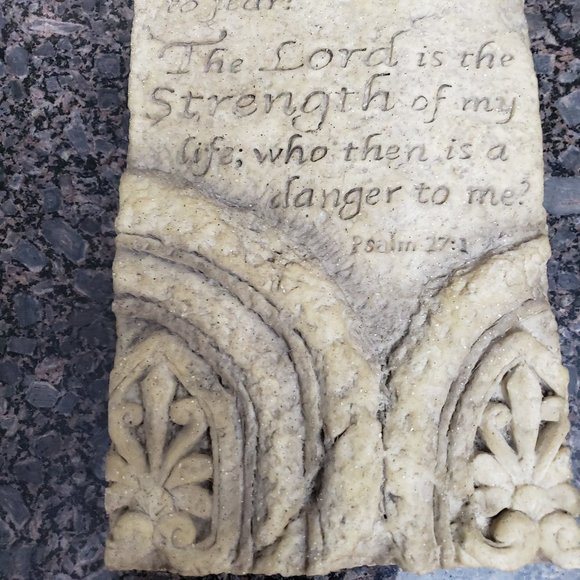 to fear.
The Lord is the
Strength of my
life; who then is a
danger to me?
Psalm 27:1